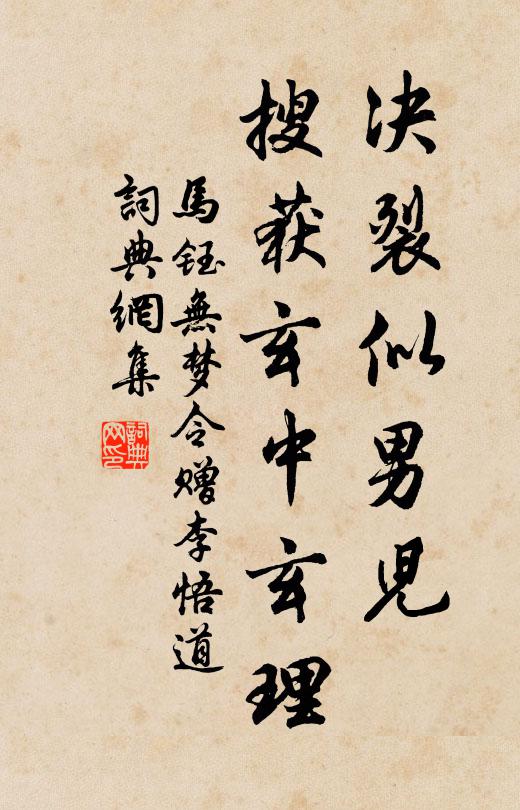 决裂似男兒
搜获玄中玄理
馬鈺無梦令赠李悟道
詞典網集
詞典网印